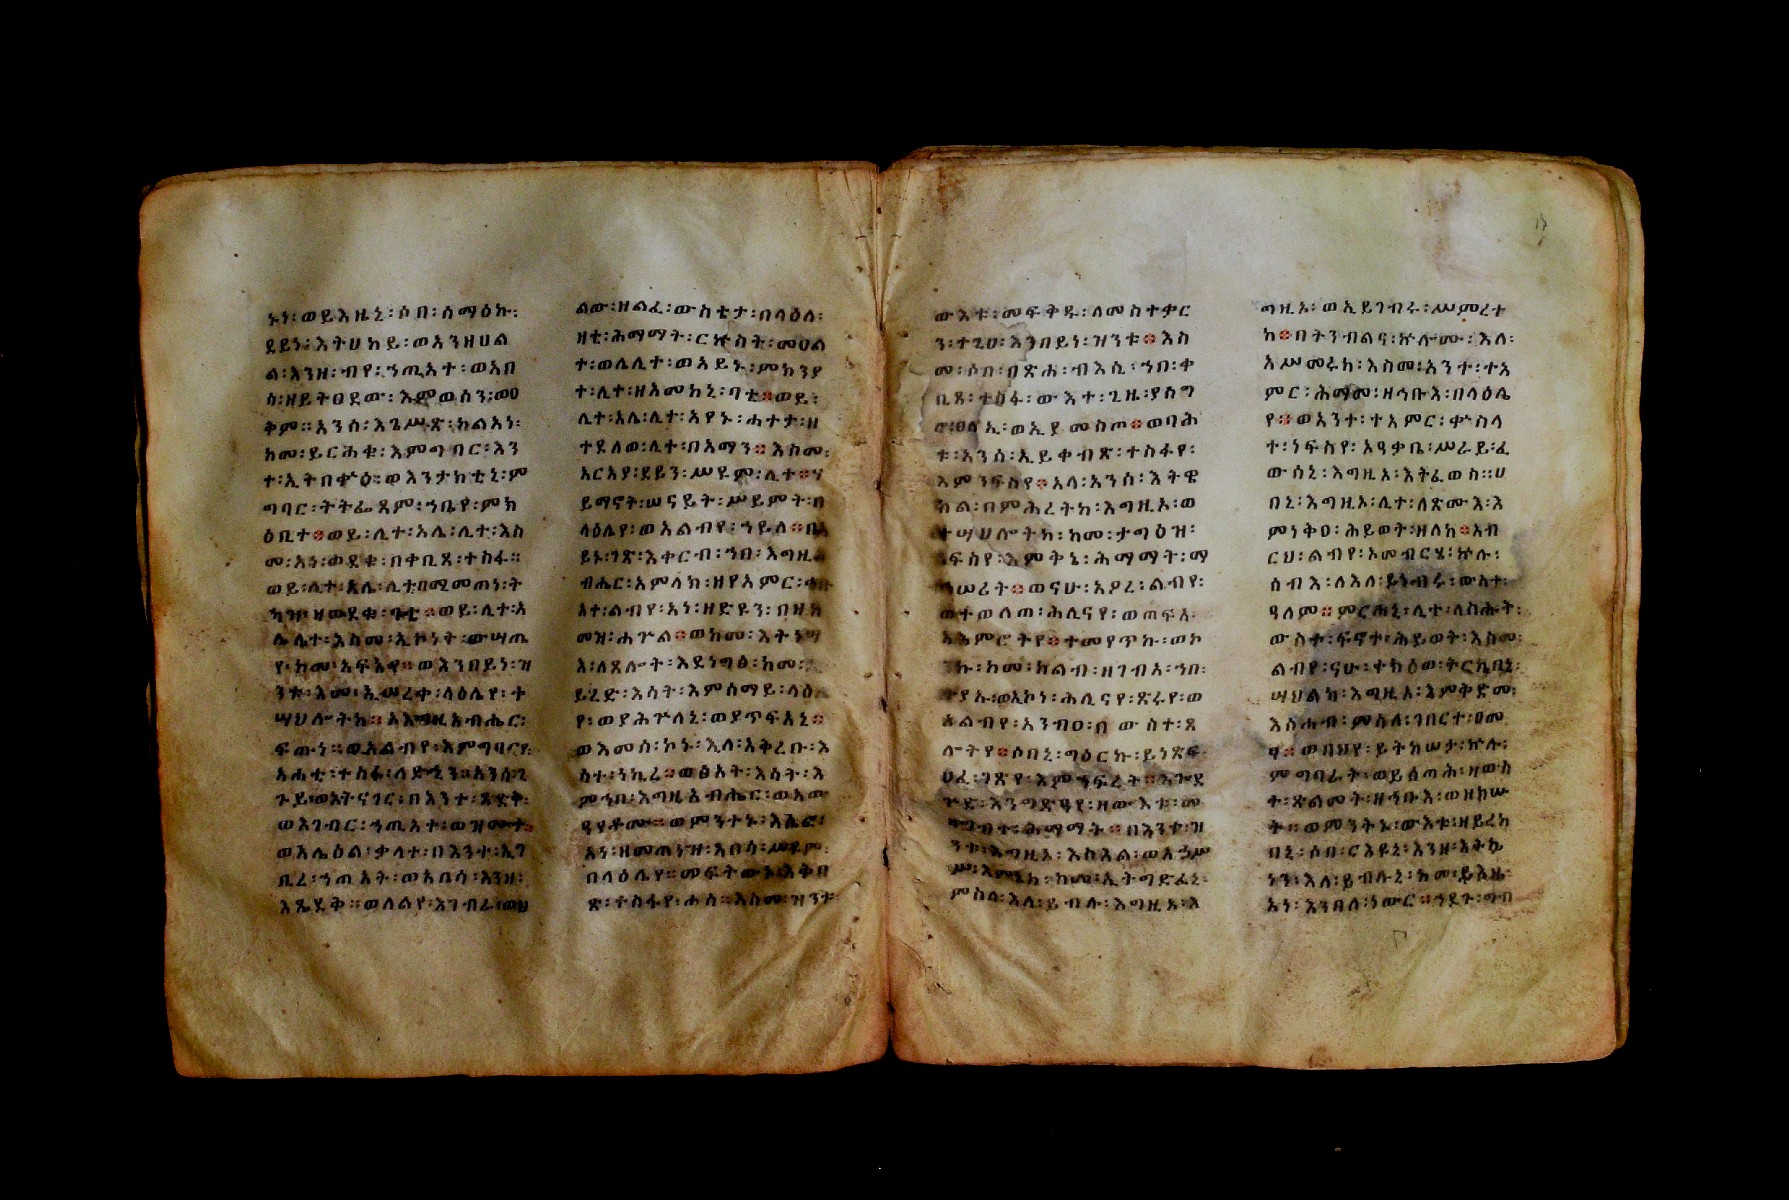 ኑን፡ወይእዜኒ፡ሶበ፡ሰማዕኩ፡
ደይን፡እትሀከይ፡ወእንዘሀል
ል፡እንዘ፡ብየ፡ኀጢአተ፡ወአበ
ሳ፡ዘይትዐደው፡እምወሰን፡ወዐ
ቅም። አንሰ፡እጌሥጽ፡ከልአነ፡
ከመ፡ይርሕቁ፡እምግባር፡እን
ተ፡ኢትበቍዕ። ወእንታክቲኒ፡ም
ግባር፡ትትፌጸም፡ኀቤየ፡ምክ
ዕቢተ። ወይ፡ሊተ፡አሌ፡ሊተ፡እስ
መ፡አነ፡ወደቁ፡በቀቢጸ፡ተስፋ።
ወይ፡ሊተ፡አሌ፡ሊተ፡በሚመጠነ፡ት
ወይ፡ሊተ፡አ
ሌ፡ሊተ፡እስመ፡ኢኮነት፡ውሣጤ
የ፡ከመ፡አፍአየ። ወእንበይነ፡ዝ
ንቱ፡እመ፡ኢሠረቀ፡ላዕሌየ፡ተ
ሣህሎትከ። እእግዚአብሔር፡
ፍጡነ። ወአልብየ፡እምግባርየ፡
አሐቲ፡ተስፋ፡ለድኂን። አንሰ፡ነ
ጉይ፡ወእትናገር፡በእንተ፡ጽድቅ፡
ወእገብር፡ኀጢአተ፡ወዝሙተ።
ወአሌዕል፡ቃላተ፡በእንተ፡ኢገ
ቢረ፡ኀጢአት፡ወአበሳ፡እንዘ፡
ወለልየ፡እገብራ፡ወዘ
ልው፡ዘልፈ፡ውስቴታ፡በላዕለ፡
ዛቲ፡ሕማማት፡ርኵስት፡መዐል
ተ፡ወሌሊተ፡ወአይኑ፡ምክንያ
ተ፡ሊተ፡ዘእመከኒ፡ባቲ። ወይ፡
ሊተ፡አሌ፡ሊተ፡አየኑ፡ሐተታ፡ዘ
ተደለወ፡ሊተ፡በአማን። እስመ፡
አርአያ፡ደይን፡ሥዩም፡ሊተ። ሃ
ይማኖት፡ሠናይት፡ሥይምት፡በ
ላዕሌየ፡ወአልብየ፡ኀይለ። በአ
ይኑ፡ገጽ፡እቀርብ፡ኀበ፡እግዚአ
ብሔር፡አምላክ፡ዘየአምር፡
አተ፡ልብየ፡አነ፡ዘድዩን፡በዘከ
መዝ፡ሐጕል። ወከመ፡እትነሣ
እ፡ለጸሎት፡እደነግፅ፡ከመ፡
ይረድ፡እሳት፡እምሰማይ፡ላዕ
የ፡ወያሕጕለኒ፡ወያጥፍአኒ።
ወእመሰ፡ኮኑ፡እለ፡አቅረቡ፡እ
ሳተ፡ነኪረ። ወፅአት፡እሳት፡እ
ምኀበ፡እግዚአብሔር፡ወአው
ዓየቶሙ። ወምንተኑ፡እሴፎ፡
አነ፡ዘመጠነዝ፡አበሳ፡ሥዩም፡
በላዕሌየ። መፍትውኑ፡እቅበ
ጽ፡ተስፋየ፡ሐሰ። እስመ፡ዝንቱ፡
ውእቱ፡መፍቅዱ፡ለመስተቃር
ን፡ተጊህ፡እንበይነ፡ዝንቱ። እስ
መ፡ሶበ፡በጽሐ፡ብእሲ፡ኀበ፡ቀ
ቢጸ፡ተስፋ፡ውእተ፡ጊዜ፡ያስግ
ወኢይመስጦ። ወባሕ
ቱ፡አንሰ፡ኢይቀብጽ፡ተስፋየ፡
እምነፍስየ። አላ፡አንሰ፡እትዌ
ከል፡በምሕረትከ፡እግዚኦ፡ወ
ተሣህሎትከ፡ከመ፡ታግዕዝ፡
ነፍስየ፡እምቅኔ፡ሕማማት፡ማ
ኅሠሪት። ወናሁ፡አዖረ፡ልብየ፡
ወተወለጠ፡ሕሊናየ፡ወጠፍአ፡
አእምሮትየ። ተመየጥኩ፡ወኮ
ንኩ፡ከመ፡ከልብ፡ዘገብአ፡ኀበ፡
ቂያኡ፡ወኢኮነ፡ሕሊናየ፡ጽሩየ፡ወ
አልብየ፡አንብዐ፡በውስተ፡ጸ
ሎትየ። ሶበኒ፡ግዕርኩ፡ይነጽፍ፡
ሀፈ፡ገጽየ፡እምኀፍረት። እጐደ
ጕድ፡እንግድዓየ፡ዘውእቱ፡መ
ሕማማት። በእንተ፡ዝ
ንቱ፡እግዚኦ፡እስእል፡ወአኃሥ
ሥ፡እምኔከ፡ከመ፡ኢትግድፈኒ፡
ምስለ፡እለ፡ይብሉ፡እግዚኦ፡እ
ግዚኦ፡ወኢይገብሩ፡ሥምረተ
ከ። በትንብልና፡ኵሎሙ፡እለ፡
አሥመሩከ፡እስመ፡አንተ፡ተአ
ምር፡ሕማመ፡ዘኅቡእ፡በላዕሌ
የ። ወአንተ፡ተአምር፡ቍስላ
ተ፡ነፍስየ፡አዓቃቤ፡ሥራይ፡ፈ
ውሰኒ፡እግዚአ፡እትፌወስ። ሀ
በኒ፡እግዚኦ፡ሊተ፡ለጽሙእ፡እ
ምነቅዐ፡ሕይወት፡ዘለከ። አብ
ርህ፡ልብየ፡ኦመብርሄ፡ኵሉ፡
ሰብእ፡ለእለ፡ይነብሩ፡ውስተ፡
ዓለም። ምርሐኒ፡ሊተ፡ለስሕት፡
ውስተ፡ፍኖተ፡ሕይወት፡እስመ፡
ልብየ፡ናሁ፡ተከዕወ፡ትርኪበኒ፡
ሣህልከ፡እግዚአ፡እምቅድመ፡
እስሐብ፡ምስለ፡ገበርተ፡ዐመ
ፃ። ወበህየ፡ይትከሠታ፡ኵሉ፡
ምግባራት፡ወይፀጣሕ፡ዘውስ
ተ፡ጽልመት፡ዘኅቡእ፡ወዘክሡ
ት። ወምንትኑ፡ውእቱ፡ዘይረከ
በኒ፡ሶበ፡ርእዩኒ፡እንዘ፡እትኴ
ነን፡እለ፡ይብሉኒ፡ከመ፡ይእዜ፡
አነ፡እንበለ፡ነውር። ኀደጉ፡ግብ